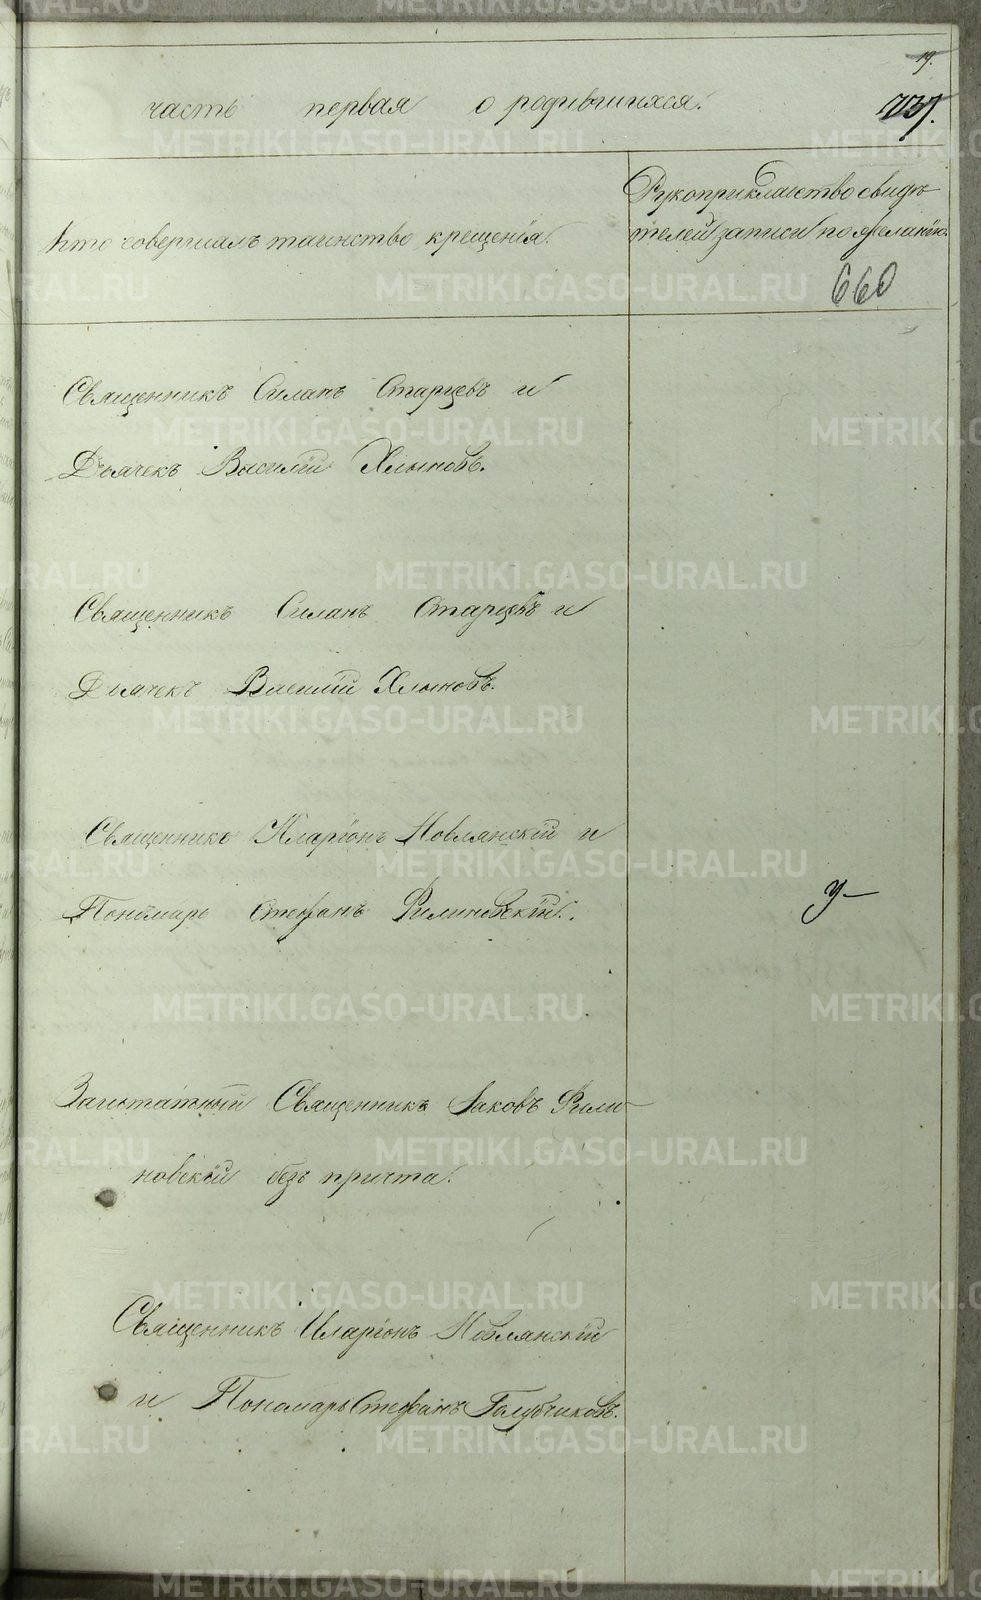 19.
часть первая о родившихся.
737.
Кто совершалъ таинство крещенія.
Рукоприкладство свидѣ-
телей записи по желанію.
660
Священникъ Силанъ Старцевъ и
Дьячекъ Василій Хлыновъ.
Священникъ Силанъ Старцевъ и
Дьячекъ Василій Хлыновъ.
Священникъ Иларіонъ Новлянскій и
Пономарь Стефанъ Филиновскій.
У
Заштатный Священникъ Іаковъ Фили-
новскій безъ причта.
Священникъ Иларіонъ Новлянскій
и Пономарь Стефанъ Голубчиковъ.
METRIKI.GASO-URAL.RU